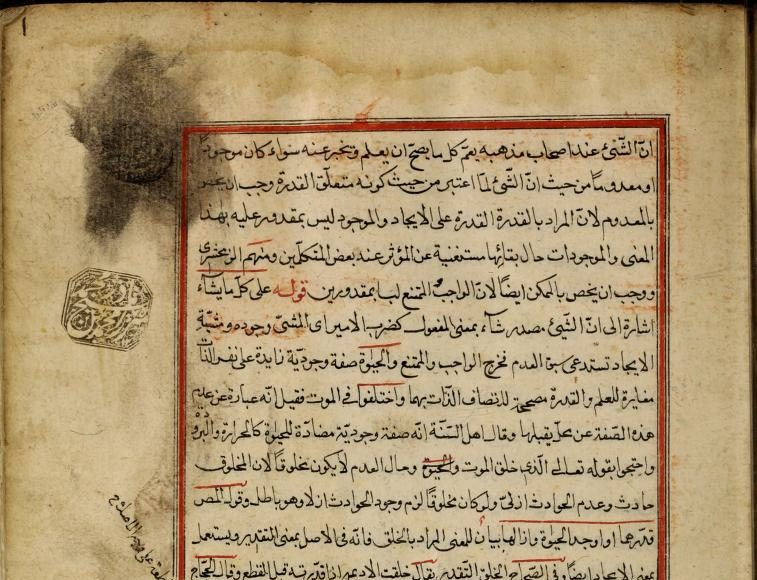 انّ الشّئ عند اصحاب مذهبه يعمّ كل ما يصحّ ان يعلم ويخبر عنه سواء كان موجودًا
او معدومًا من حيث انّ الشّئ لمّا اعتبر من حيث كونه متعلّق القدرة وجب ان
بالمعدوم لانّ المراد بالقدرة القدرة على الايجاد والموجود ليس بمقدور عليه بهذا
المعنى والموجودات حال بقائها مستغنية عن المؤثر عند بعض المتكلّمين ومنهم الزمخشرى
ووجب ان يخص بالممكن ايضًا لانّ الواجب والممتنع ليسا بمقدورين قوله على كلّ ما يشاء
اشارة الى انّ الشّئ مصدر شاء بمعنى المفعول كضرب الامير اى المشئ وجوده ومشيّة
الايجاد تستدعى سبق العدم فخرج الواجب والممتنع والحيوة صفة وجوديّة زايدة على نفس الذّات
مغايرة للعلم والقدرة مصحّحة لاتصاف الذّات بهما واختلفوا فى الموت فقيل انّه عبارة عن عدم
هذه الصّفة عن محلّ يقبلها وقال اهل السّنّة انّه صفة وجوديّة مضادّة للحيوة كالحرارة والبرودة
واحتجوا بقوله تعالى الّذى خلق الموت والحيوة وحال العدم لا يكون مخلوقًا لان المخلوق
حادث وعدم الحوادث ازلىّ ولو كان مخلوقًا لزم وجود الحوادث ازلا وهو باطل وقوله المص
قدرهما او اوجد الحيوة وازالها بيان للمعنى المراد بالخلق فانّه فى الاصل بمعنى التقدير ويستعمل
بمعنى الايجاد ايضًا وفى الصّحاح الخلق التقدير يقال خلقت الاديم اذا قدّرته قبل القطع وقال الحجّاج